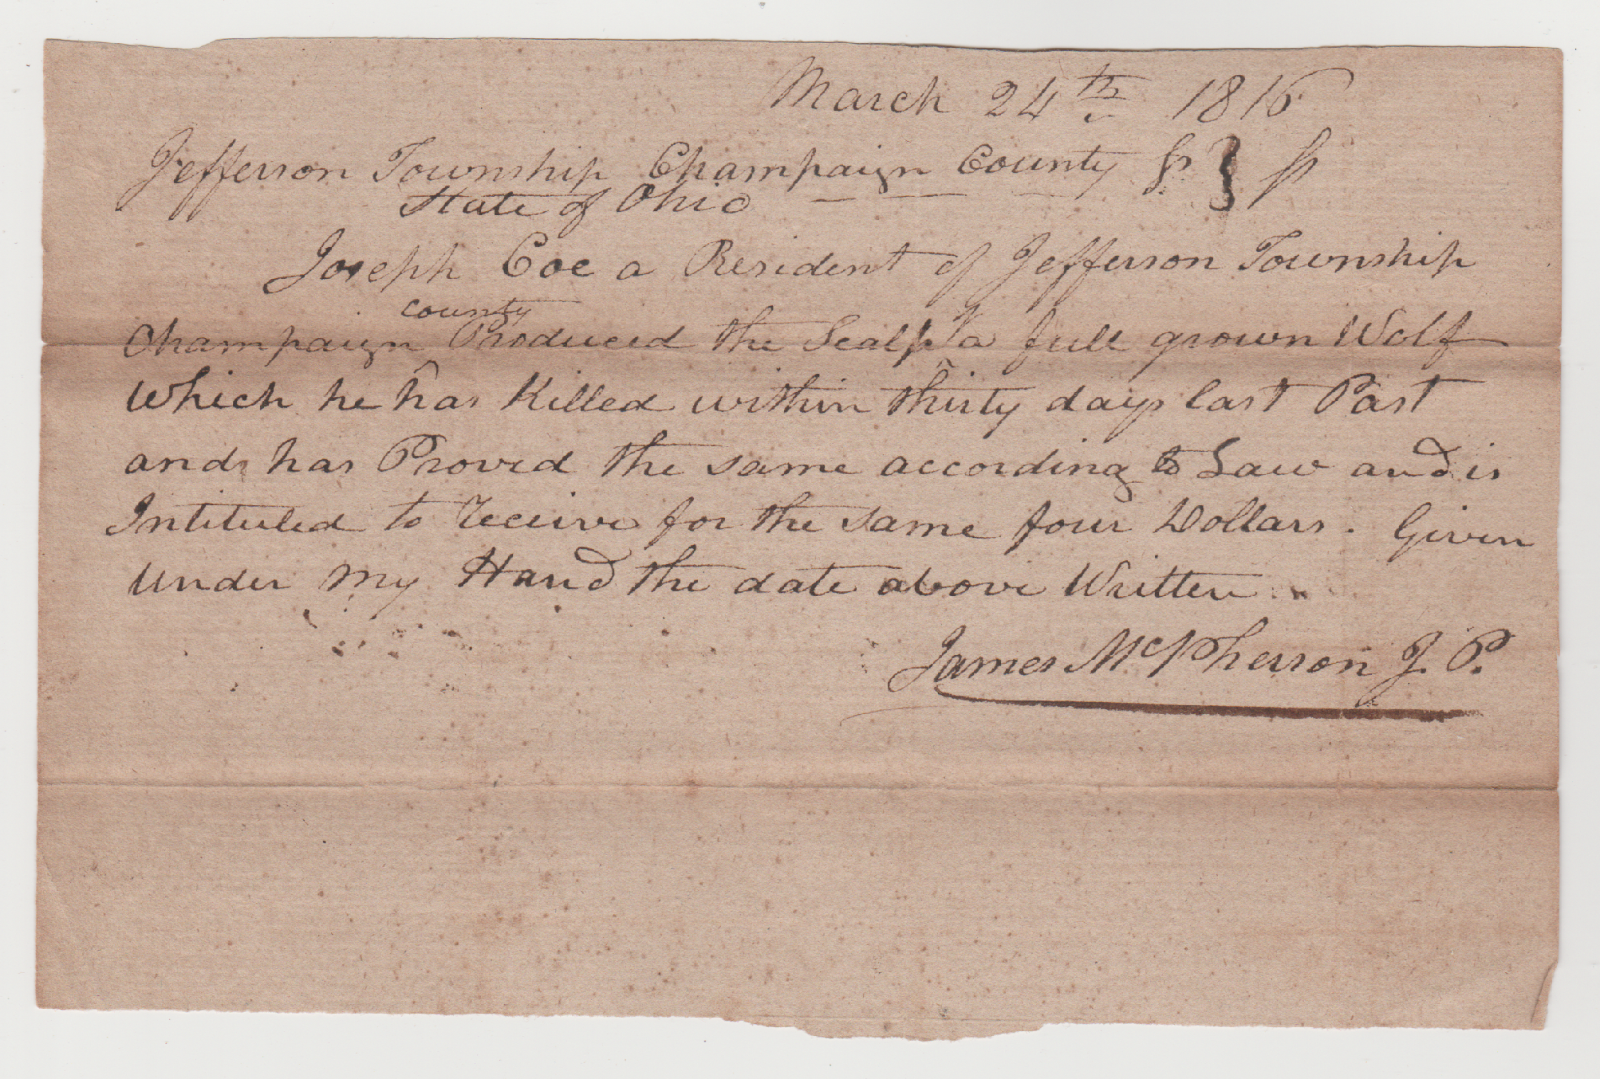 March 24th 1816
Jefferson Township Champaign County ss } ss
State of Ohio
Joseph Coe a Resident of Jefferson Township
county
Champaign Produced the Scalp of a full grown Wolf
Which he has Killed within thirty days last Past
and has Proved the same according to Law and is
Intituled to Receive for the same four Dollars. Given
Under my Hand the date above Written
James McPherson J. P.